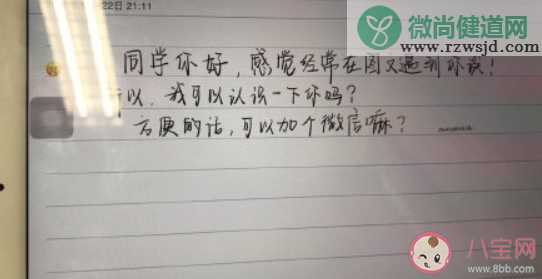 22日 21:11
微尚健道网
www.rzwsjd.com
同学你好，感觉经常在图又遇到你诶！
所以，我可以认识一下你吗？
方便的话，可以加个微信嘛？
八宝网
www.8bb.com